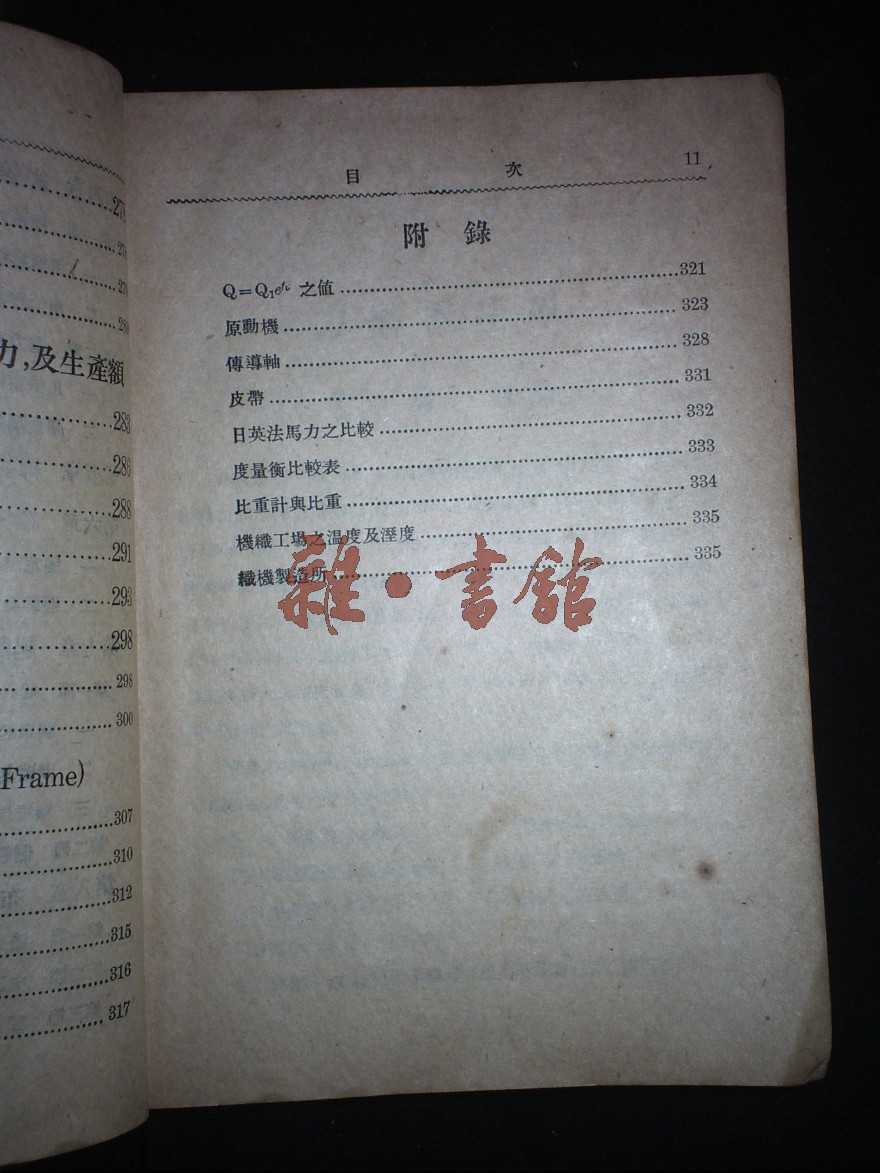 278
278
279
280
力,及生產額
283
286
288
291
293
298
298
300
Frame)
307
310
312
315
316
317
目 次 11
附 錄
Q=Q₁eᶠʳ 之値 321
原動機 323
傳導軸 328
皮帶 331
日英法馬力之比較 332
度量衡比較表 333
比重計與比重 334
機織工場之溫度及溼度 335
織機製造所 335
雜·書館